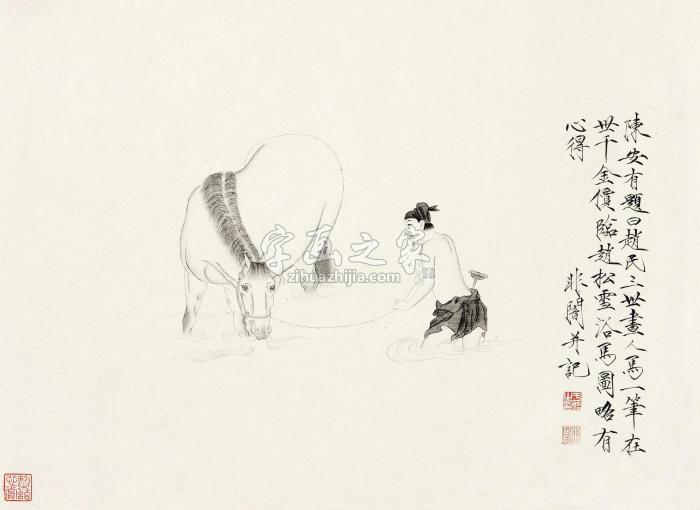 陳安有題曰趙氏三世畫人馬一筆在
世千金價臨趙松雪浴馬圖略有
心得
非闇并記
字画之家
zihuazhijia.com